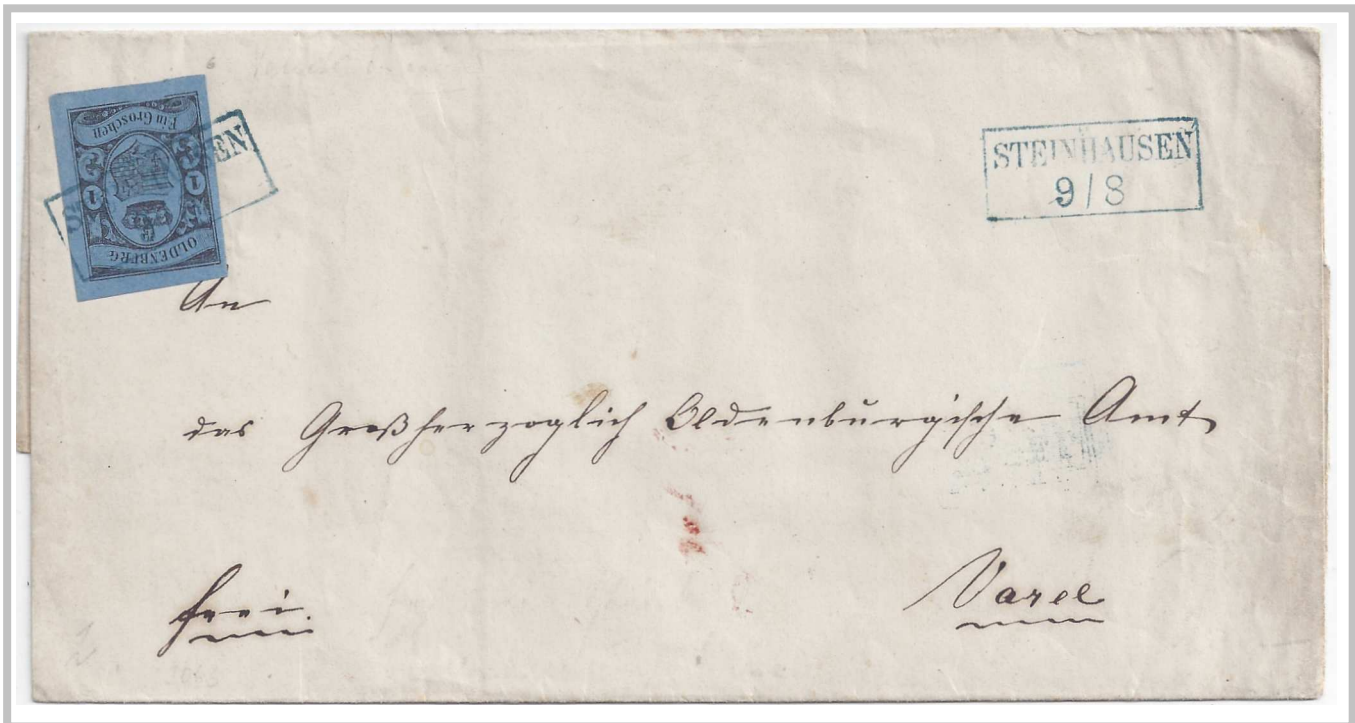 Ein Groschen
1 1
OLDENBURG
STEINHAUSEN
9/8
An
das Großherzoglich Oldenburgische Amt
frei
Varel